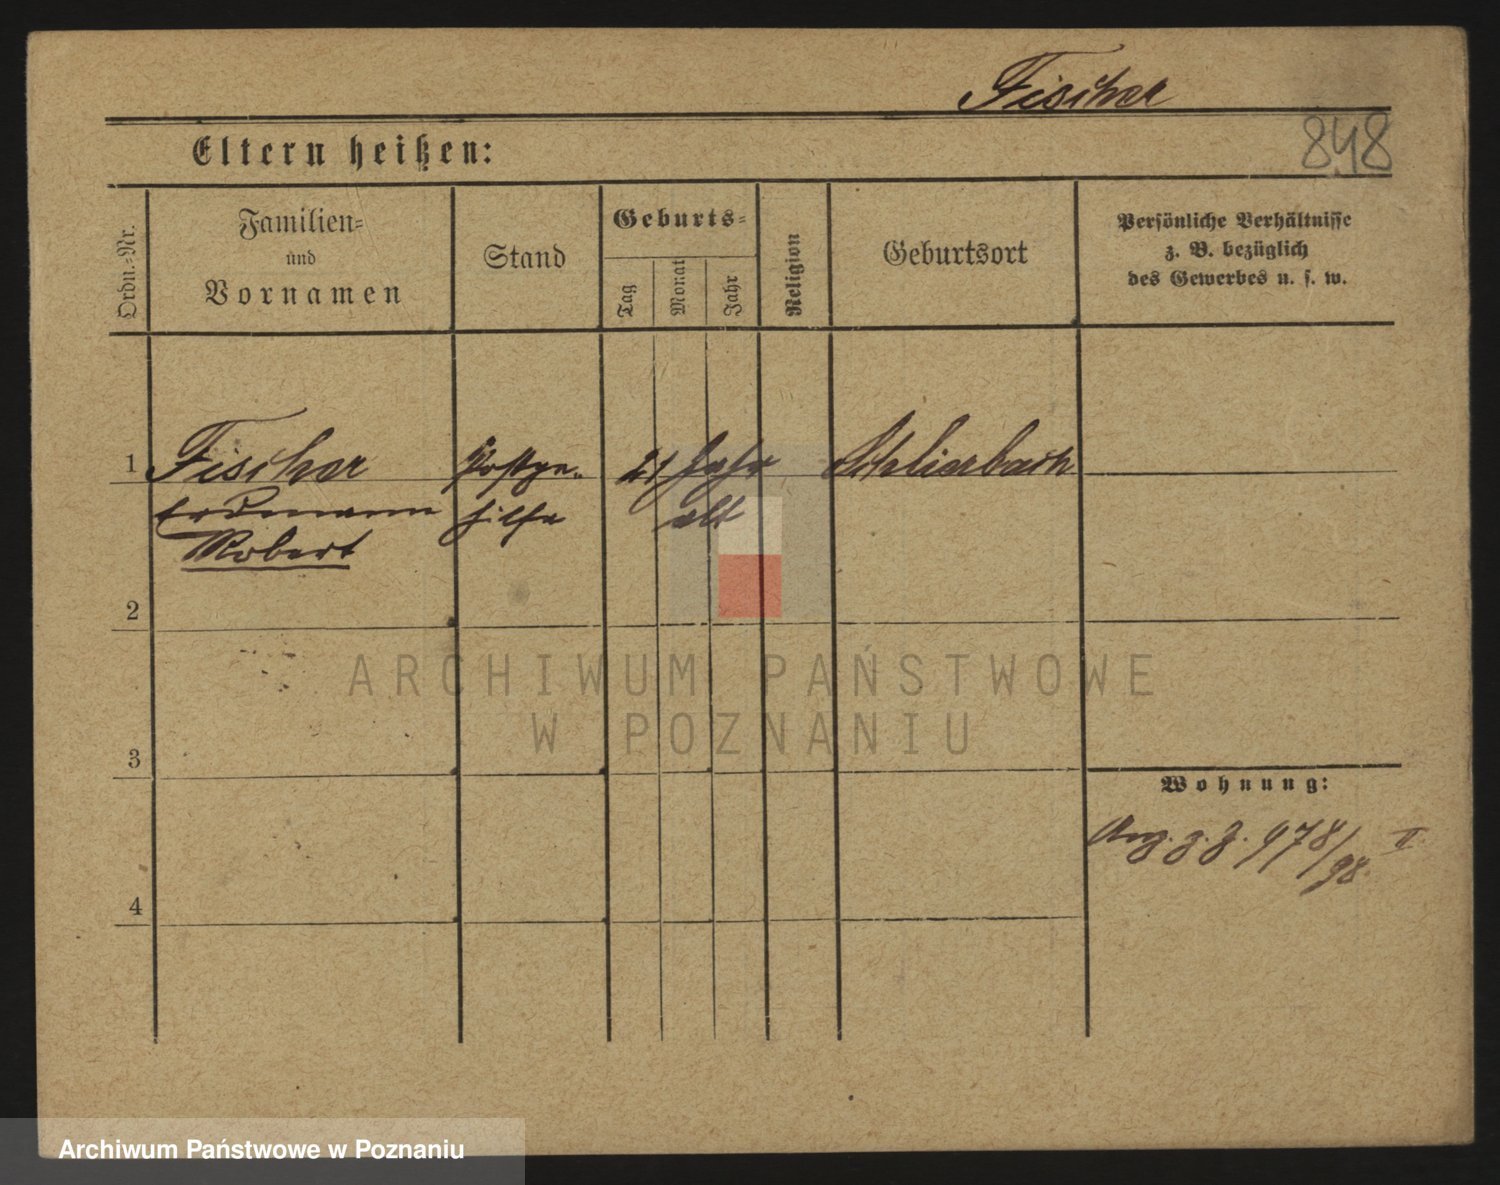 Fischer
848
Eltern heißen:
Ordn.-Nr.
Familien-
und
Vornamen
Stand
Geburts-
Tag
Monat
Jahr
Religion
Geburtsort
Persönliche Verhältnisse
z. B. bezüglich
des Gewerbes u. s. w.
1 Fischer Postge- 21 Jahr Schlierbach
Erdmann hilfe alt
Robert
2
ARCHIWUM PAŃSTWOWE
W POZNANIU
3
Wohnung:
Ang. z. J. 978/98 II
4
Archiwum Państwowe w Poznaniu